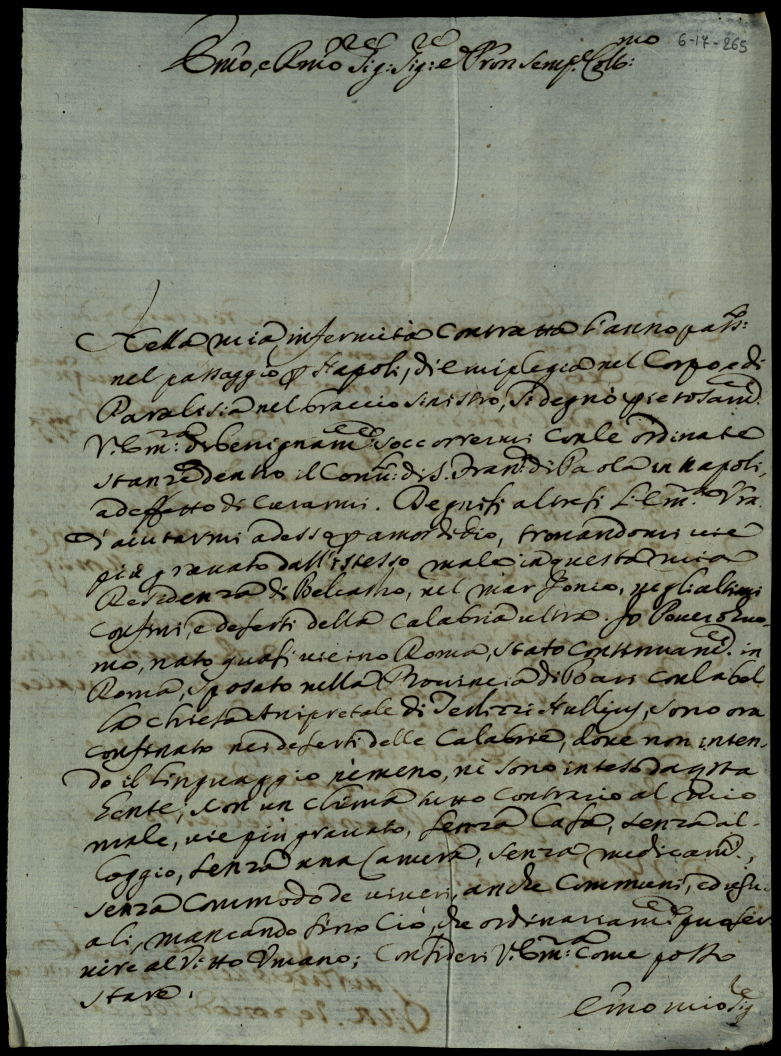 6-17-265
Emo, e Rmo Sig: Sig: e Pron Semp: Coll:mo
Nella mia infermità contratta l'anno pass:
nel passaggio p Napoli, di emiplegia nel Corpo e di
Paralisia nel braccio sinistro, si degnò pietosam.
V: Em: di benignam: soccorrermi con le ordinate
stanze dentro il Conu: di S. Fran: di Paola in Napoli,
ad effetto di curarmi. Degnisi altresi l'Em: Vra
d'aiutarmi adesso p amor di Dio, trouandomi uie
più grauato dall'istesso male in questa mia
Residenza di Belcastro, nel mar Jonio, negli altimi
Confini, e deserti della Calabria ultra. Jo Pouero Huo-
mo, nato quasi uicino Roma, stato continuam. in
Roma, sposato nella Prouincia di Bari con la bel
la Chiesa di Terlizzi Nullius, sono ora
confinato nei deserti delle Calabrie, doue non inten-
do il linguaggio nemeno, nè sono inteso da qsta
Gente, con un Clima tutto contrario al mio
male, uie più grauato, senza Casa, senza al-
loggio, senza una Camera, senza medicam:,
senza Commodo de uiueri, anche Communi, ed usu-
ali, mancando sino ciò, che ordinariam: può ser
uire al Vitto Umano; Consideri V: Em: Come posso
stare.
Emo mio Sig